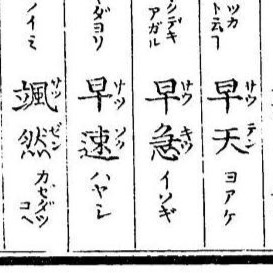 ツカ
ト云ヿ
早天 サウテン ヨアケ
シデキ
アガル
早急 サウキウ イソギ
ダヨリ
早速 サツソク ハヤシ
ノイミ
颯然 サツゼン カゼダツ
コヘ